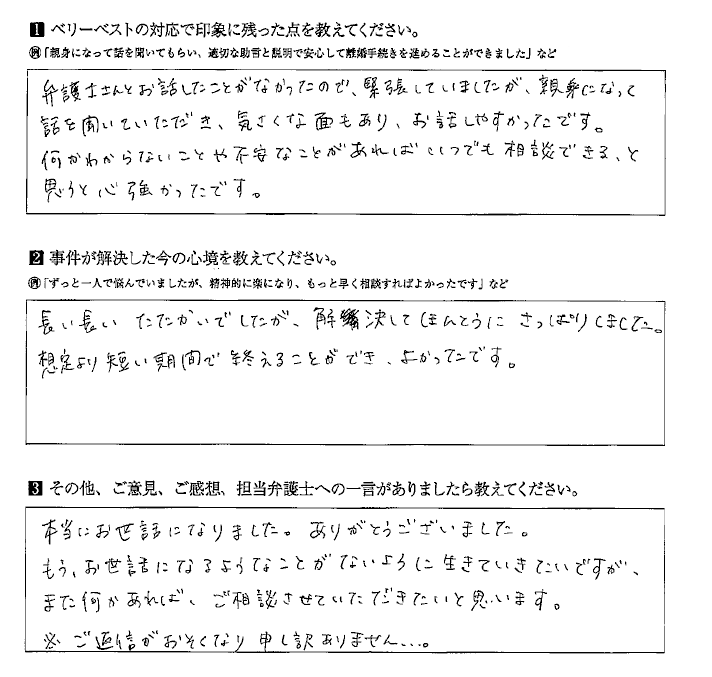 1 ベリーベストの対応で印象に残った点を教えてください。
例「親身になって話を聞いてもらい、適切な助言と説明で安心して離婚手続きを進めることができました」など
弁護士さんとお話したことがなかったので、緊張していましたが、親身になって
話を聞いていただき、気さくな面もあり、お話しやすかったです。
何かわからないことや不安なことがあればいつでも相談できる、と
思うと心強かったです。
2 事件が解決した今の心境を教えてください。
例「ずっと一人で悩んでいましたが、精神的に楽になり、もっと早く相談すればよかったです」など
長い長いたたかいでしたが、解決してほんとうにさっぱりしました。
想定より短い期間で終えることができ、よかったです。
3 その他、ご意見、ご感想、担当弁護士への一言がありましたら教えてください。
本当にお世話になりました。ありがとうございました。
もう、お世話になるようなことがないように生きていきたいですが、
また何かあれば、ご相談させていただきたいと思います。
※ ご返信がおそくなり申し訳ありません...。